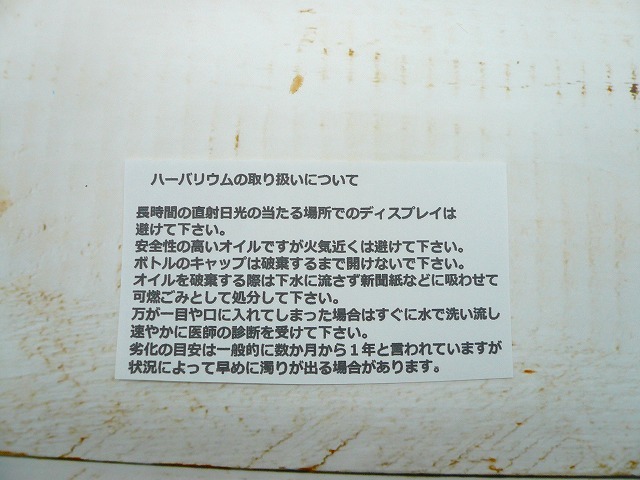 ハーバリウムの取り扱いについて
長時間の直射日光の当たる場所でのディスプレイは
避けて下さい。
安全性の高いオイルですが火気近くは避けて下さい。
ボトルのキャップは破棄するまで開けないで下さい。
オイルを破棄する際は下水に流さず新聞紙などに吸わせて
可燃ごみとして処分して下さい。
万が一目や口に入れてしまった場合はすぐに水で洗い流し
速やかに医師の診断を受けて下さい。
劣化の目安は一般的に数か月から１年と言われていますが
状況によって早めに濁りが出る場合があります。